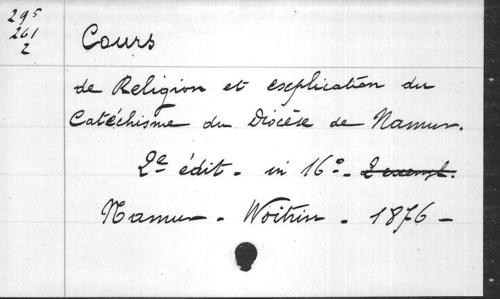 295
261
2
Cours
de Religion et explication du
Catéchisme du Diocèse de Namur.
2e édit. in 16°. 2 exempl.
Namur. Woitrin. 1876